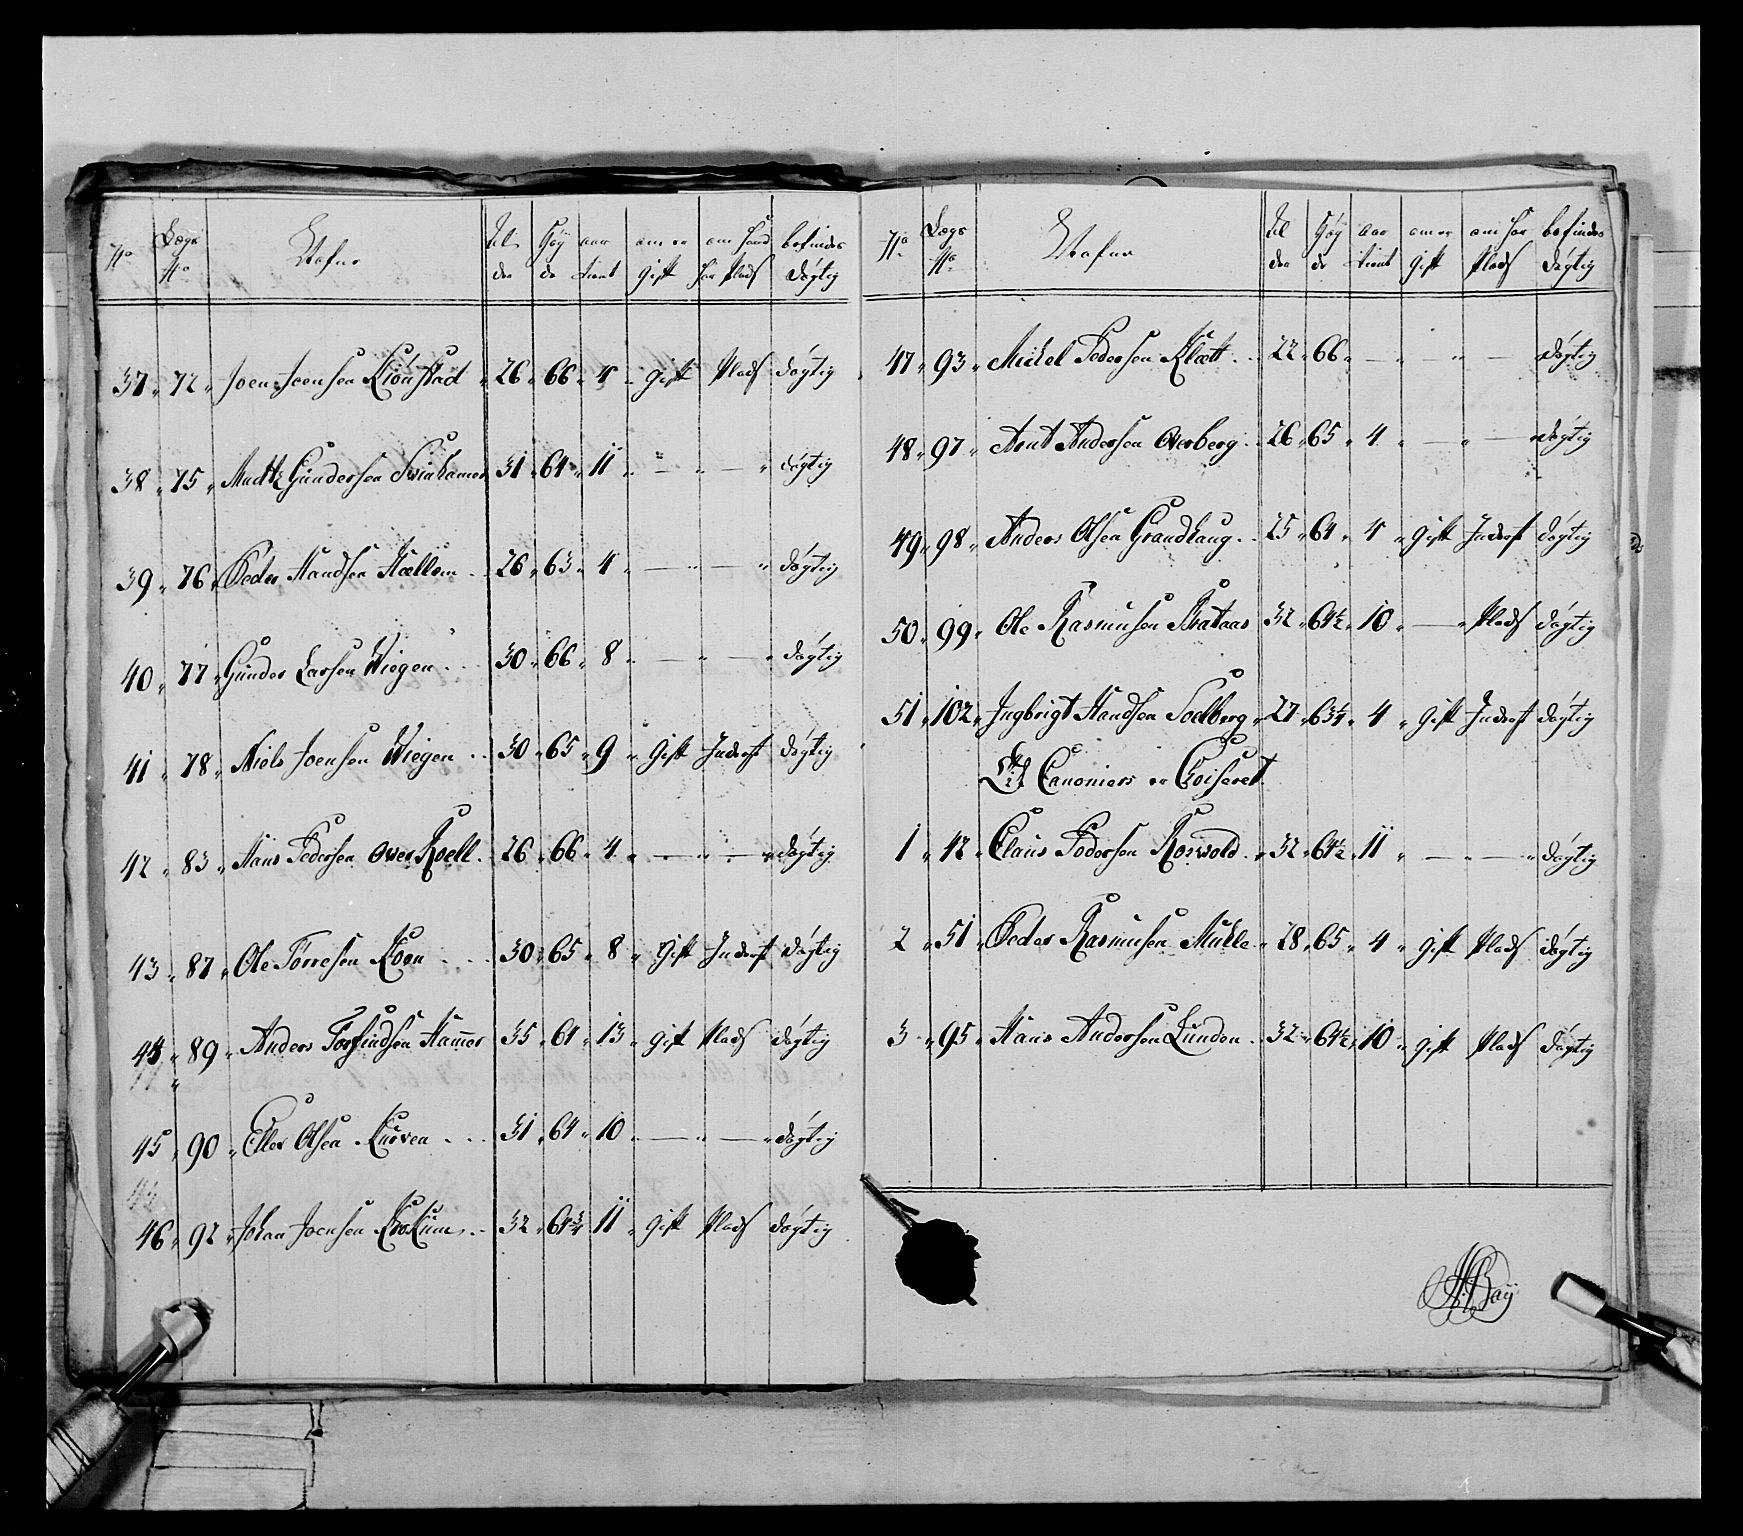 No Lægs No Nafne Al der Høy de aar tient om er gift om hand har Plads befindes døgtig
37 72 Joen Joensen Kiønstad 26 66 4 gift Plads døgtig
38 75 Madtz Gundersen Svinhamer 31 64 11 döegtig
39 76 Peder Handsen Hællem 26 63 4 døgtig
40 77 Gunder Larsen Wiegen 30 66 8 døgtig
41 78 Niels Joensen Wiegen 30 65 9 gift Inderst døgtig
42 83 Hans Pedersen Over Koell 26 66 4 døgtig
43 87 Ole Torresen Moen 30 65 8 gift Inderst døgtig
44 89 Anders Torfindsen Hamer 35 64 13 gift Plads døgtig
45 90 Eller Olsen Kurven 31 64 10 døgtig
46 92 Johan Joensen 32 64¾ 11 gift Plads døgtig
No Lægs No Nafne Al der Høy de aar tient om er gift om har Plads befindes døgtig
47 93 Mickel Pedersen Klætt 22 66 døgtig
48 97 Arnt Andersen Overberg 26 65 4 døgtig
49 98 Anders Olsen Grandhaug 25 64 4 gift Inderst døgtig
50 99 Ole Rasmusen Brataas 32 64½ 10 Plads døgtig
51 102 Ingbrigt Handsen Soelberg 27 63¼ 4 gift Inderst døgtig
Til Canoniers er Choiseret
1 42 Claus Pedersen Roswold 32 64½ 11 døgtig
2 51 Peder Rasmusen Muhle 28 65 4 gift Plads døgtig
3 95 Hans Andersen Lunden 32 64½ 10 gift Plads døgtig
Baÿ